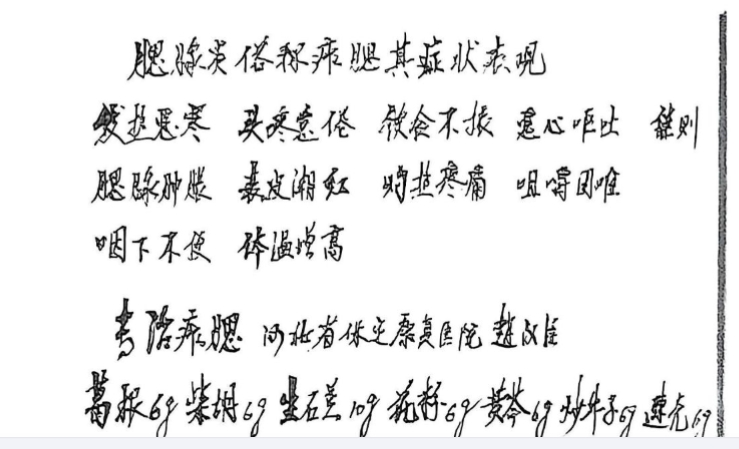 腮腺炎俗称痄腮其症状表现
发热恶寒 头疼意倦 饮食不振 恶心呕吐 继则
腮腺肿胀 表皮潮红 灼热疼痛 咀嚼困难
咽下不便 体温增高
专治痄腮 河北省保定康复医院 赵
葛根6g 柴胡6g 生石羔10g 花粉6g 黄芩6g 炒牛子6g 连壳6g